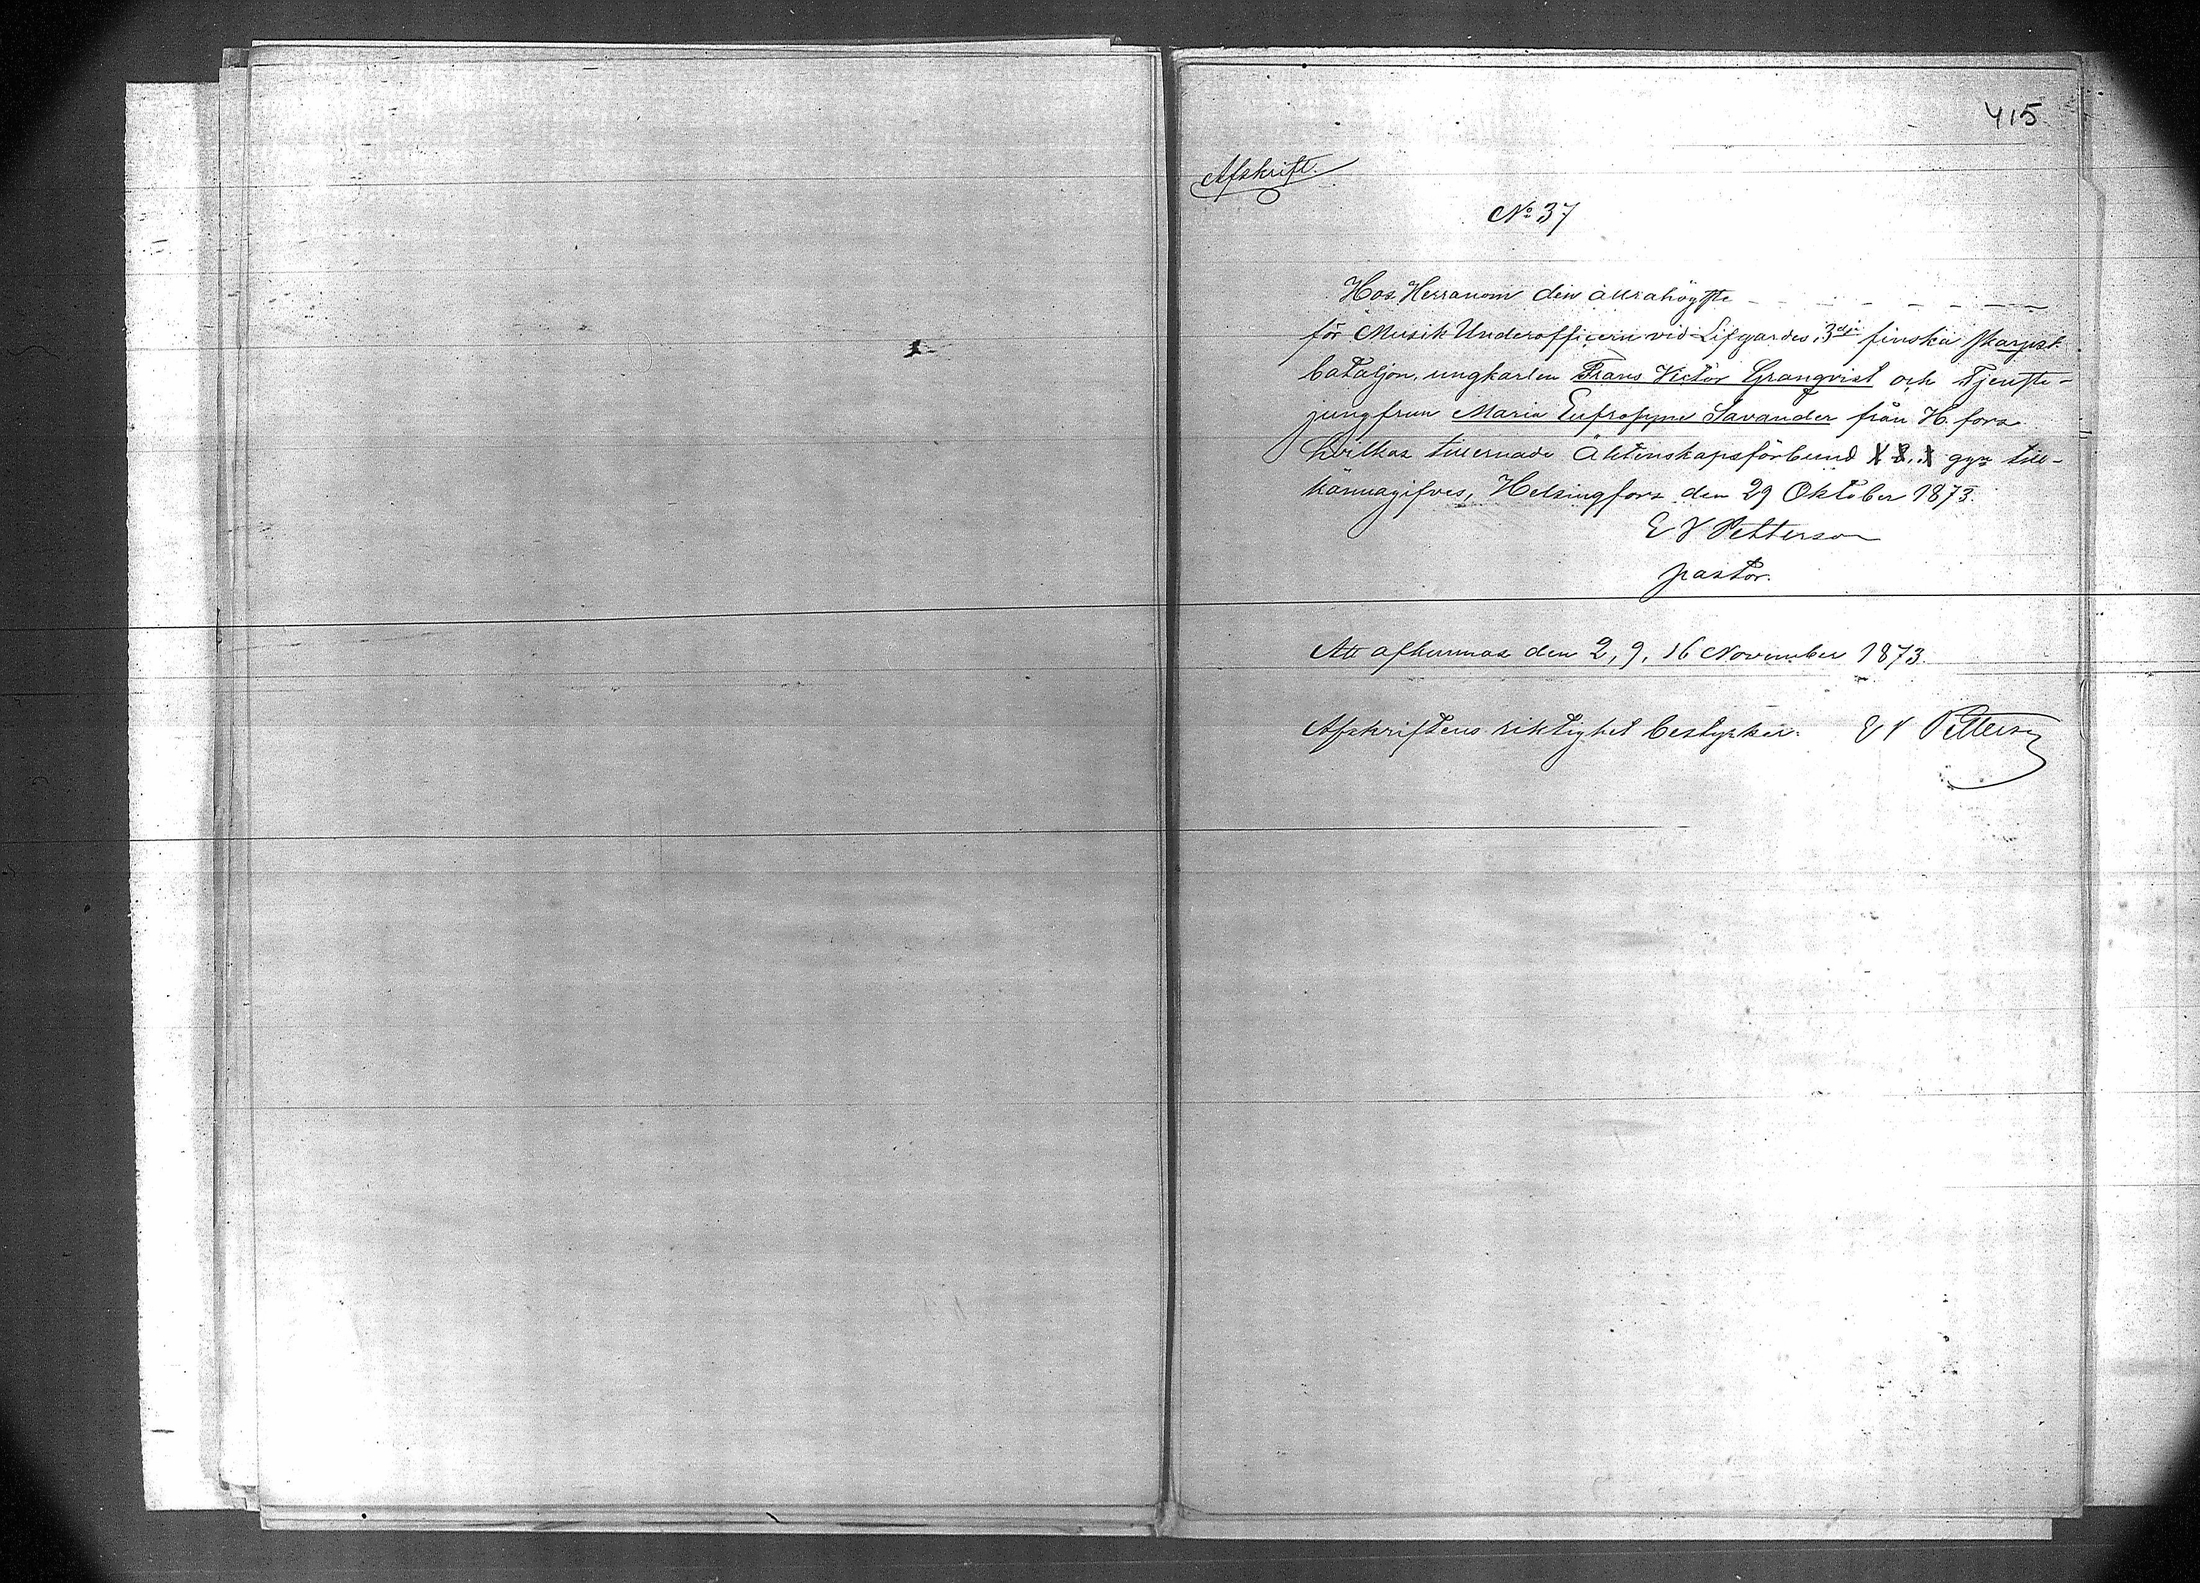 415
Afskrift.
No 37
Hos Herranom den allrahögste
för Musik Underofficern vid Lifgardes 3dje finska skarpsk.
bataljon, ungkarlen Frans Victor Granqvist och Tjenste-
jungfrun Maria Eufrosyne Savander från H.fors
hvilkas tillernade Äktenskapsförbund gyn till-
kännagifves, Helsingfors den 29 Oktober 1873.
E V Petterson
pastor.
Att afkunnas den 2, 9, 16 November 1873.
Afskriftens riktighet bestyrker. E V Petterson